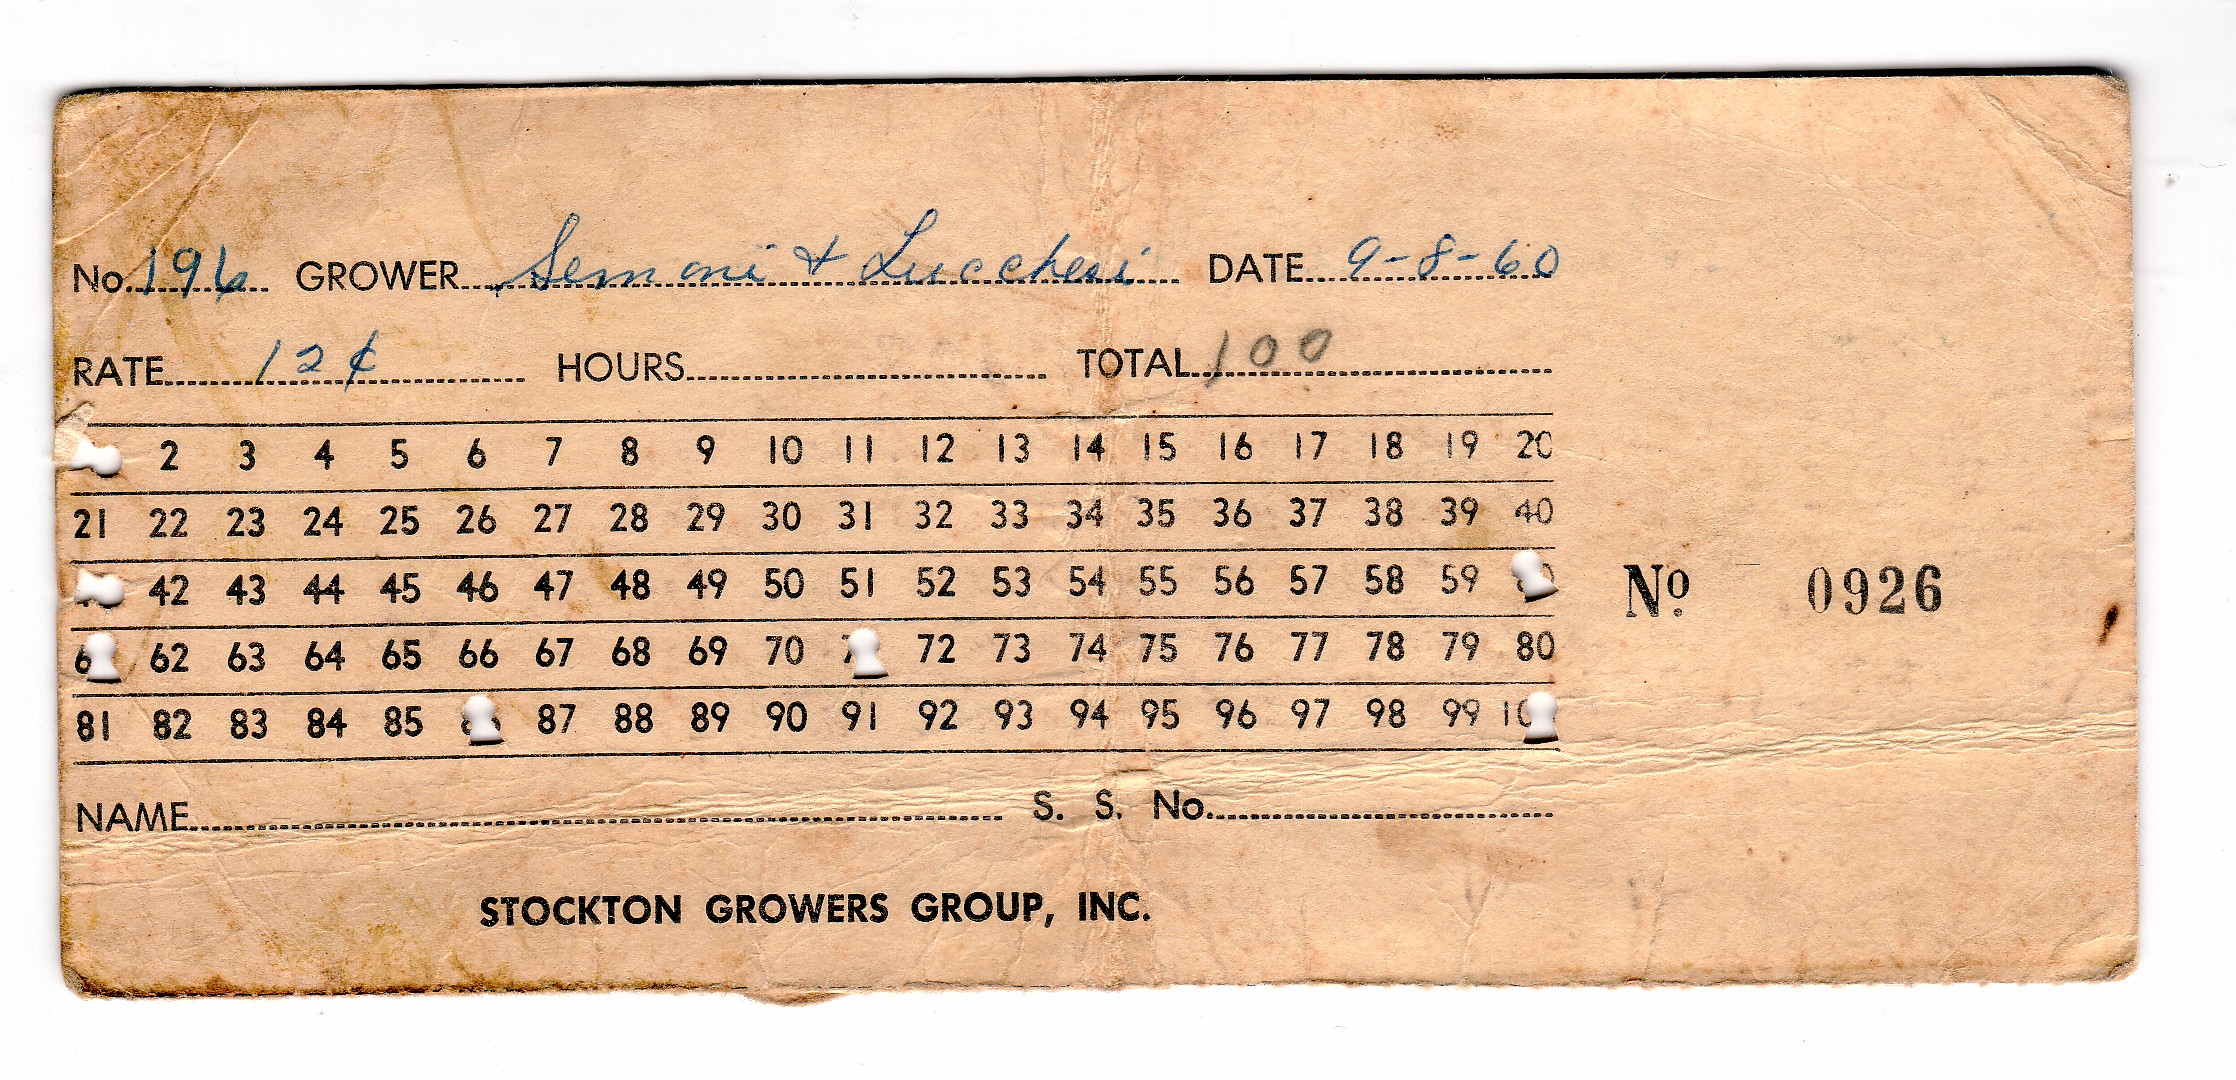 No. 196 GROWER Semoni & Lucchesi DATE 9-8-60
RATE 12¢ HOURS TOTAL 100
2 3 4 5 6 7 8 9 10 11 12 13 14 15 16 17 18 19 20
21 22 23 24 25 26 27 28 29 30 31 32 33 34 35 36 37 38 39 40
42 43 44 45 46 47 48 49 50 51 52 53 54 55 56 57 58 59
62 63 64 65 66 67 68 69 70 72 73 74 75 76 77 78 79 80
81 82 83 84 85 87 88 89 90 91 92 93 94 95 96 97 98 99
No 0926
NAME S. S. No.
STOCKTON GROWERS GROUP, INC.